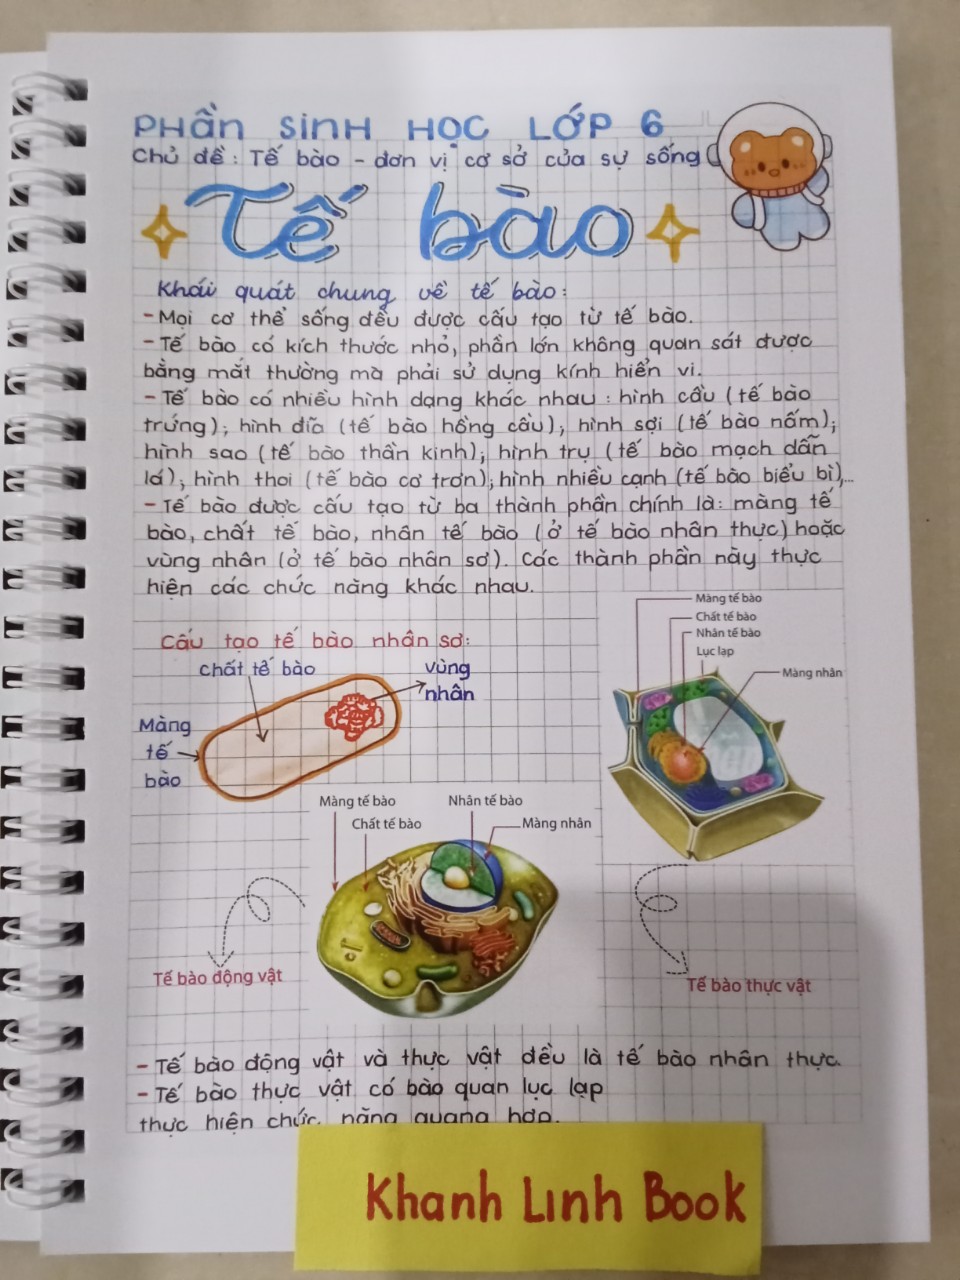 PHần SinH HỌC LỚP 6
Chủ đề: Tế bào - đơn vị cơ sở của sự sống
Tế bào
Khái quát chung về tế bào:
- Mọi cơ thể sống đều được cấu tạo từ tế bào.
- Tế bào có kích thước nhỏ, phần lớn không quan sát được
bằng mắt thường mà phải sử dụng kính hiển vi.
- Tế bào có nhiều hình dạng khác nhau: hình cầu (tế bào
trứng); hình đĩa (tế bào hồng cầu); hình sợi (tế bào nấm);
hình sao (tế bào thần kinh); hình trụ (tế bào mạch dẫn
lá); hình thoi (tế bào cơ trơn); hình nhiều cạnh (tế bào biểu bì),...
- Tế bào được cấu tạo từ ba thành phần chính là: màng tế
bào, chất tế bào, nhân tế bào (ở tế bào nhân thực) hoặc
vùng nhân (ở tế bào nhân sơ). Các thành phần này thực
hiện các chức năng khác nhau.
Cấu tạo tế bào nhân sơ:
chất tế bào
vùng
nhân
Màng
tế
bào
Màng tế bào
Chất tế bào
Nhân tế bào
Lục lạp
Màng nhân
Màng tế bào
Nhân tế bào
Chất tế bào
Màng nhân
Tế bào động vật
Tế bào thực vật
- Tế bào động vật và thực vật đều là tế bào nhân thực.
- Tế bào thực vật có bào quan lục lạp
thực hiện chức năng quang hợp.
Khanh Linh Book